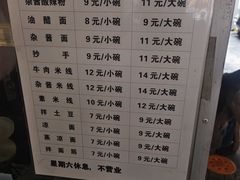 杂酱酸辣粉 9元/小碗 11元/大碗
油醋面 8元/小碗 9元/大碗
杂酱面 9元/小碗 11元/大碗
抄手 9元/小碗 11元/大碗
牛肉米线 12元/小碗 14元/大碗
杂酱米线 12元/小碗 14元/大碗
素米线 10元/小碗 12元/大碗
拌土豆 7元/小碗 9元/大碗
凉面 7元/小碗 9元/大碗
素凉面 7元/小碗 9元/大碗
拌面筋 7元/小碗 9元/大碗
星期六休息，不营业